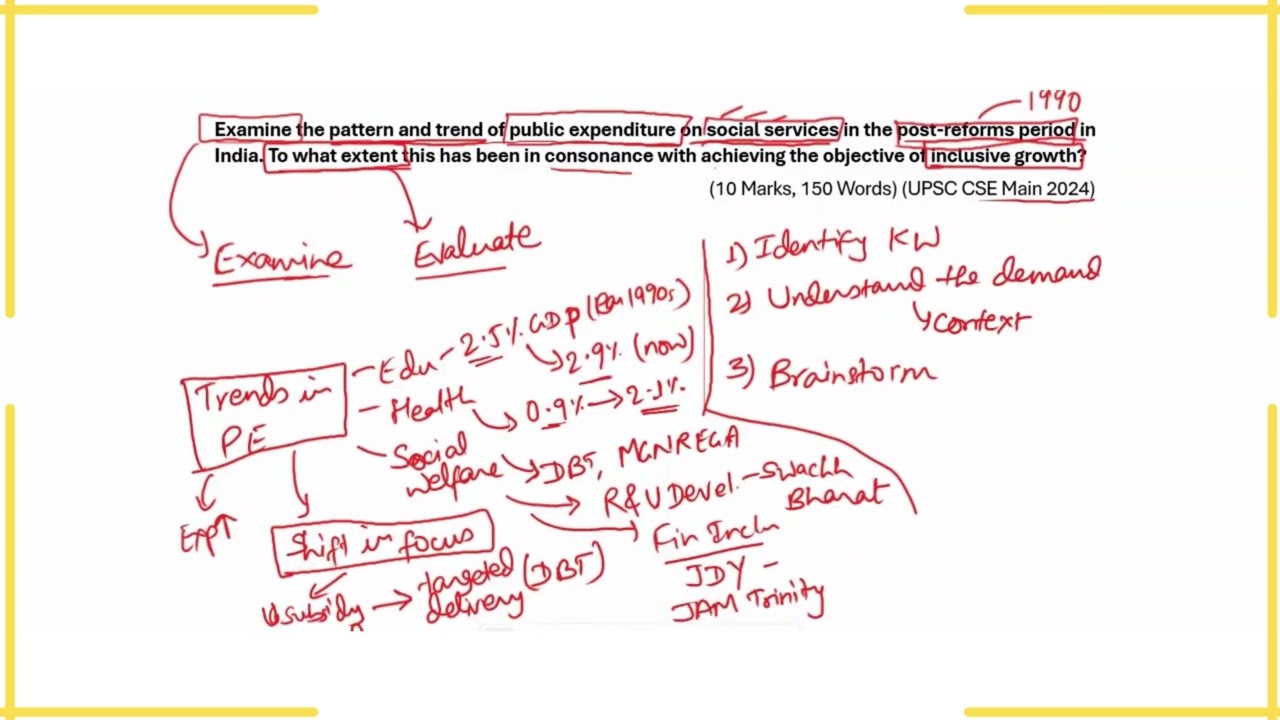 1990
Examine the pattern and trend of public expenditure on social services in the post-reforms period in
India. To what extent this has been in consonance with achieving the objective of inclusive growth?
(10 Marks, 150 Words) (UPSC CSE Main 2024)
Examine
Evaluate
1) Identify KW
2) Understand the demand
context
3) Brainstorm
Trends in
PE
Exp↑
- Edu - 2.5% GDP (Ear 1990s)
→ 2.9% (now)
- Health
→ 0.9% → 2.1%
- Social
welfare
→ DBT, MGNREGA
→ R&U Devel. - Swachh
Bharat
→ Fin Incln
JDY -
JAM Trinity
Shift in focus
subsidy → Targeted
delivery (DBT)